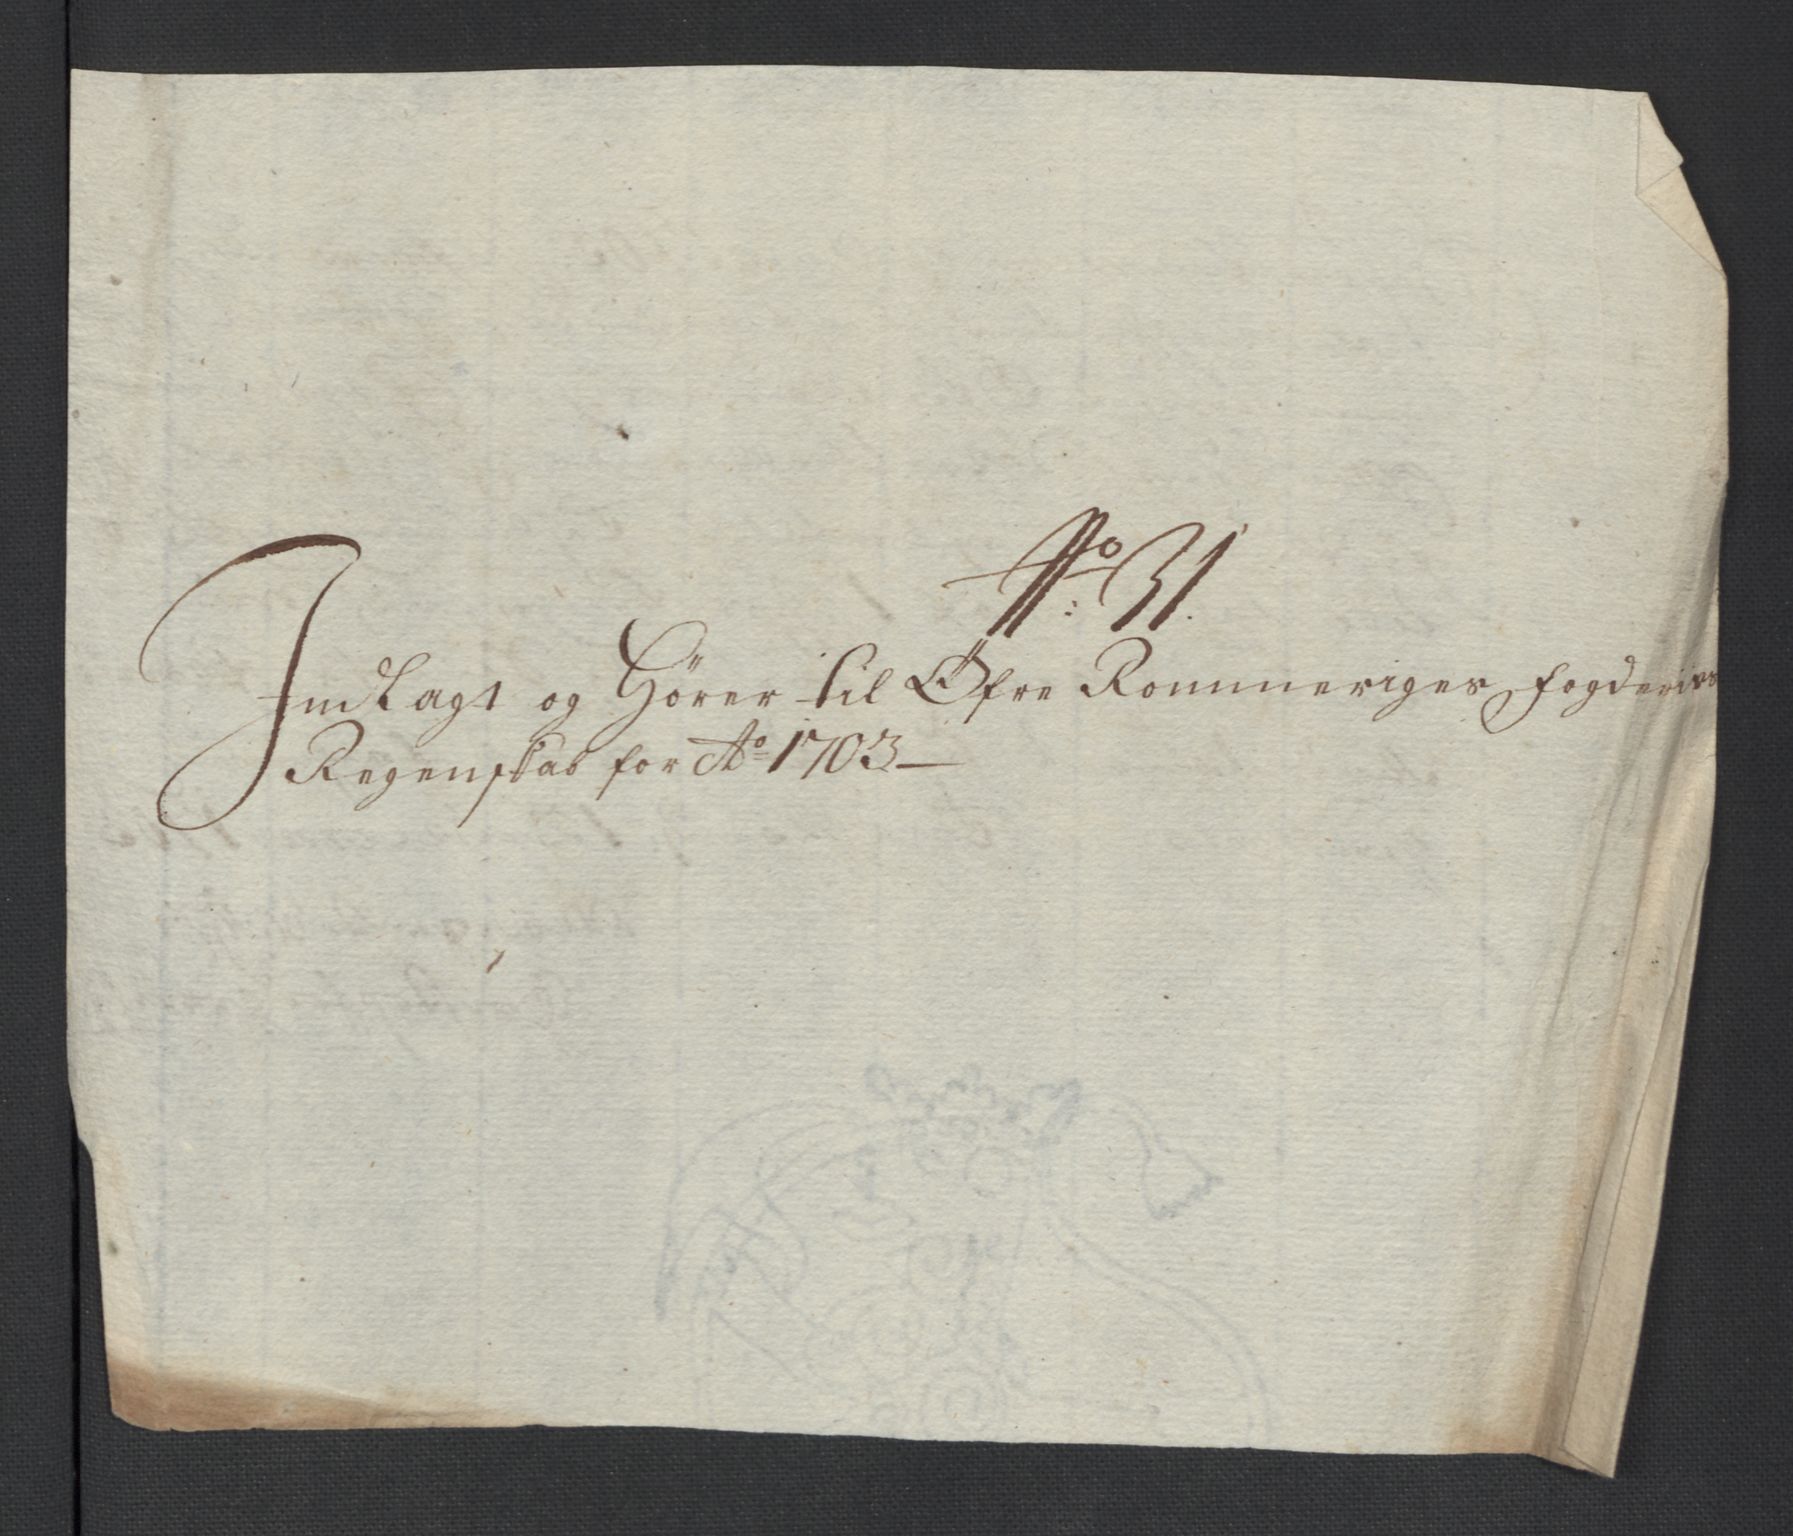 No: 31.
Indlagt og Hörer til Øfre Rommeriges fogderies
Regenskab for Ao 1703